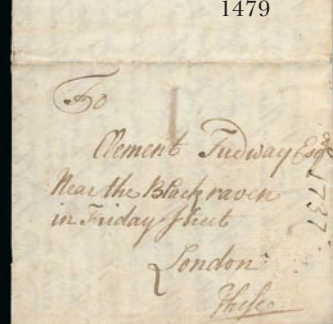 1479
To
Clement Tudway Esqr
Near the Black raven
in Friday street
London
These
1737